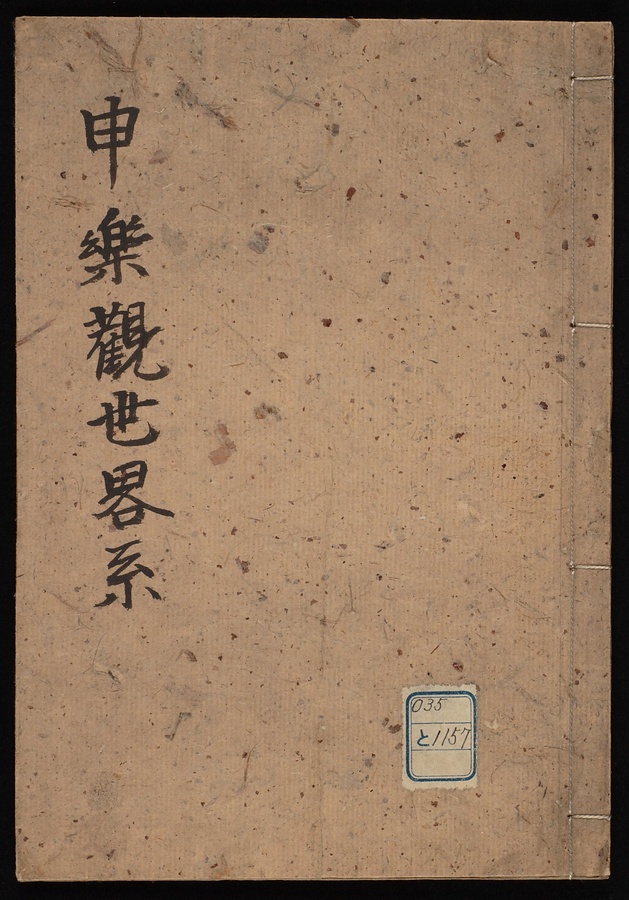 申樂觀世畧系
035
と1157